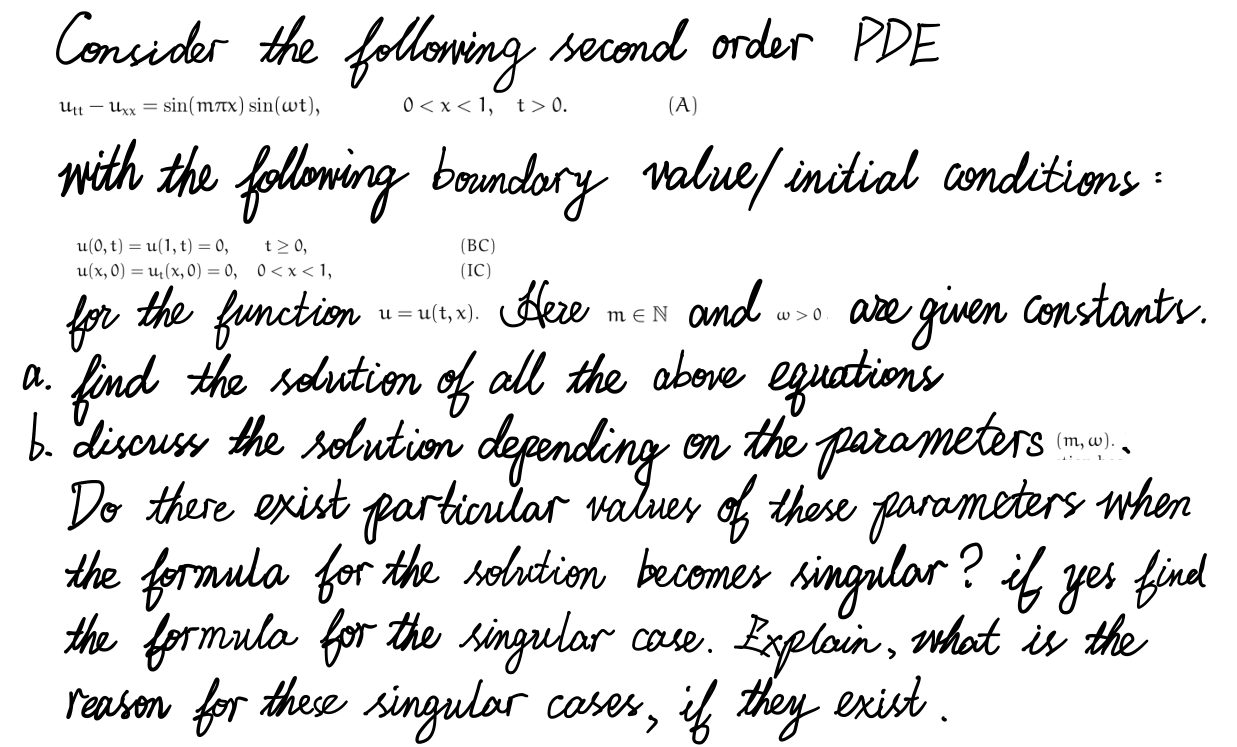 Consider the following second order PDE
uₜₜ − uₓₓ = sin(mπx) sin(ωt), 0 < x < 1, t > 0. (A)
with the following boundary value/initial conditions:
u(0,t) = u(1,t) = 0, t ≥ 0, (BC)
u(x,0) = uₜ(x,0) = 0, 0 < x < 1, (IC)
for the function u = u(t,x). Here m ∈ ℕ and ω > 0 are given constants.
a. find the solution of all the above equations
b. discuss the solution depending on the parameters (m, ω).
Do there exist particular values of these parameters when
the formula for the solution becomes singular? if yes find
the formula for the singular case. Explain, what is the
reason for these singular cases, if they exist.